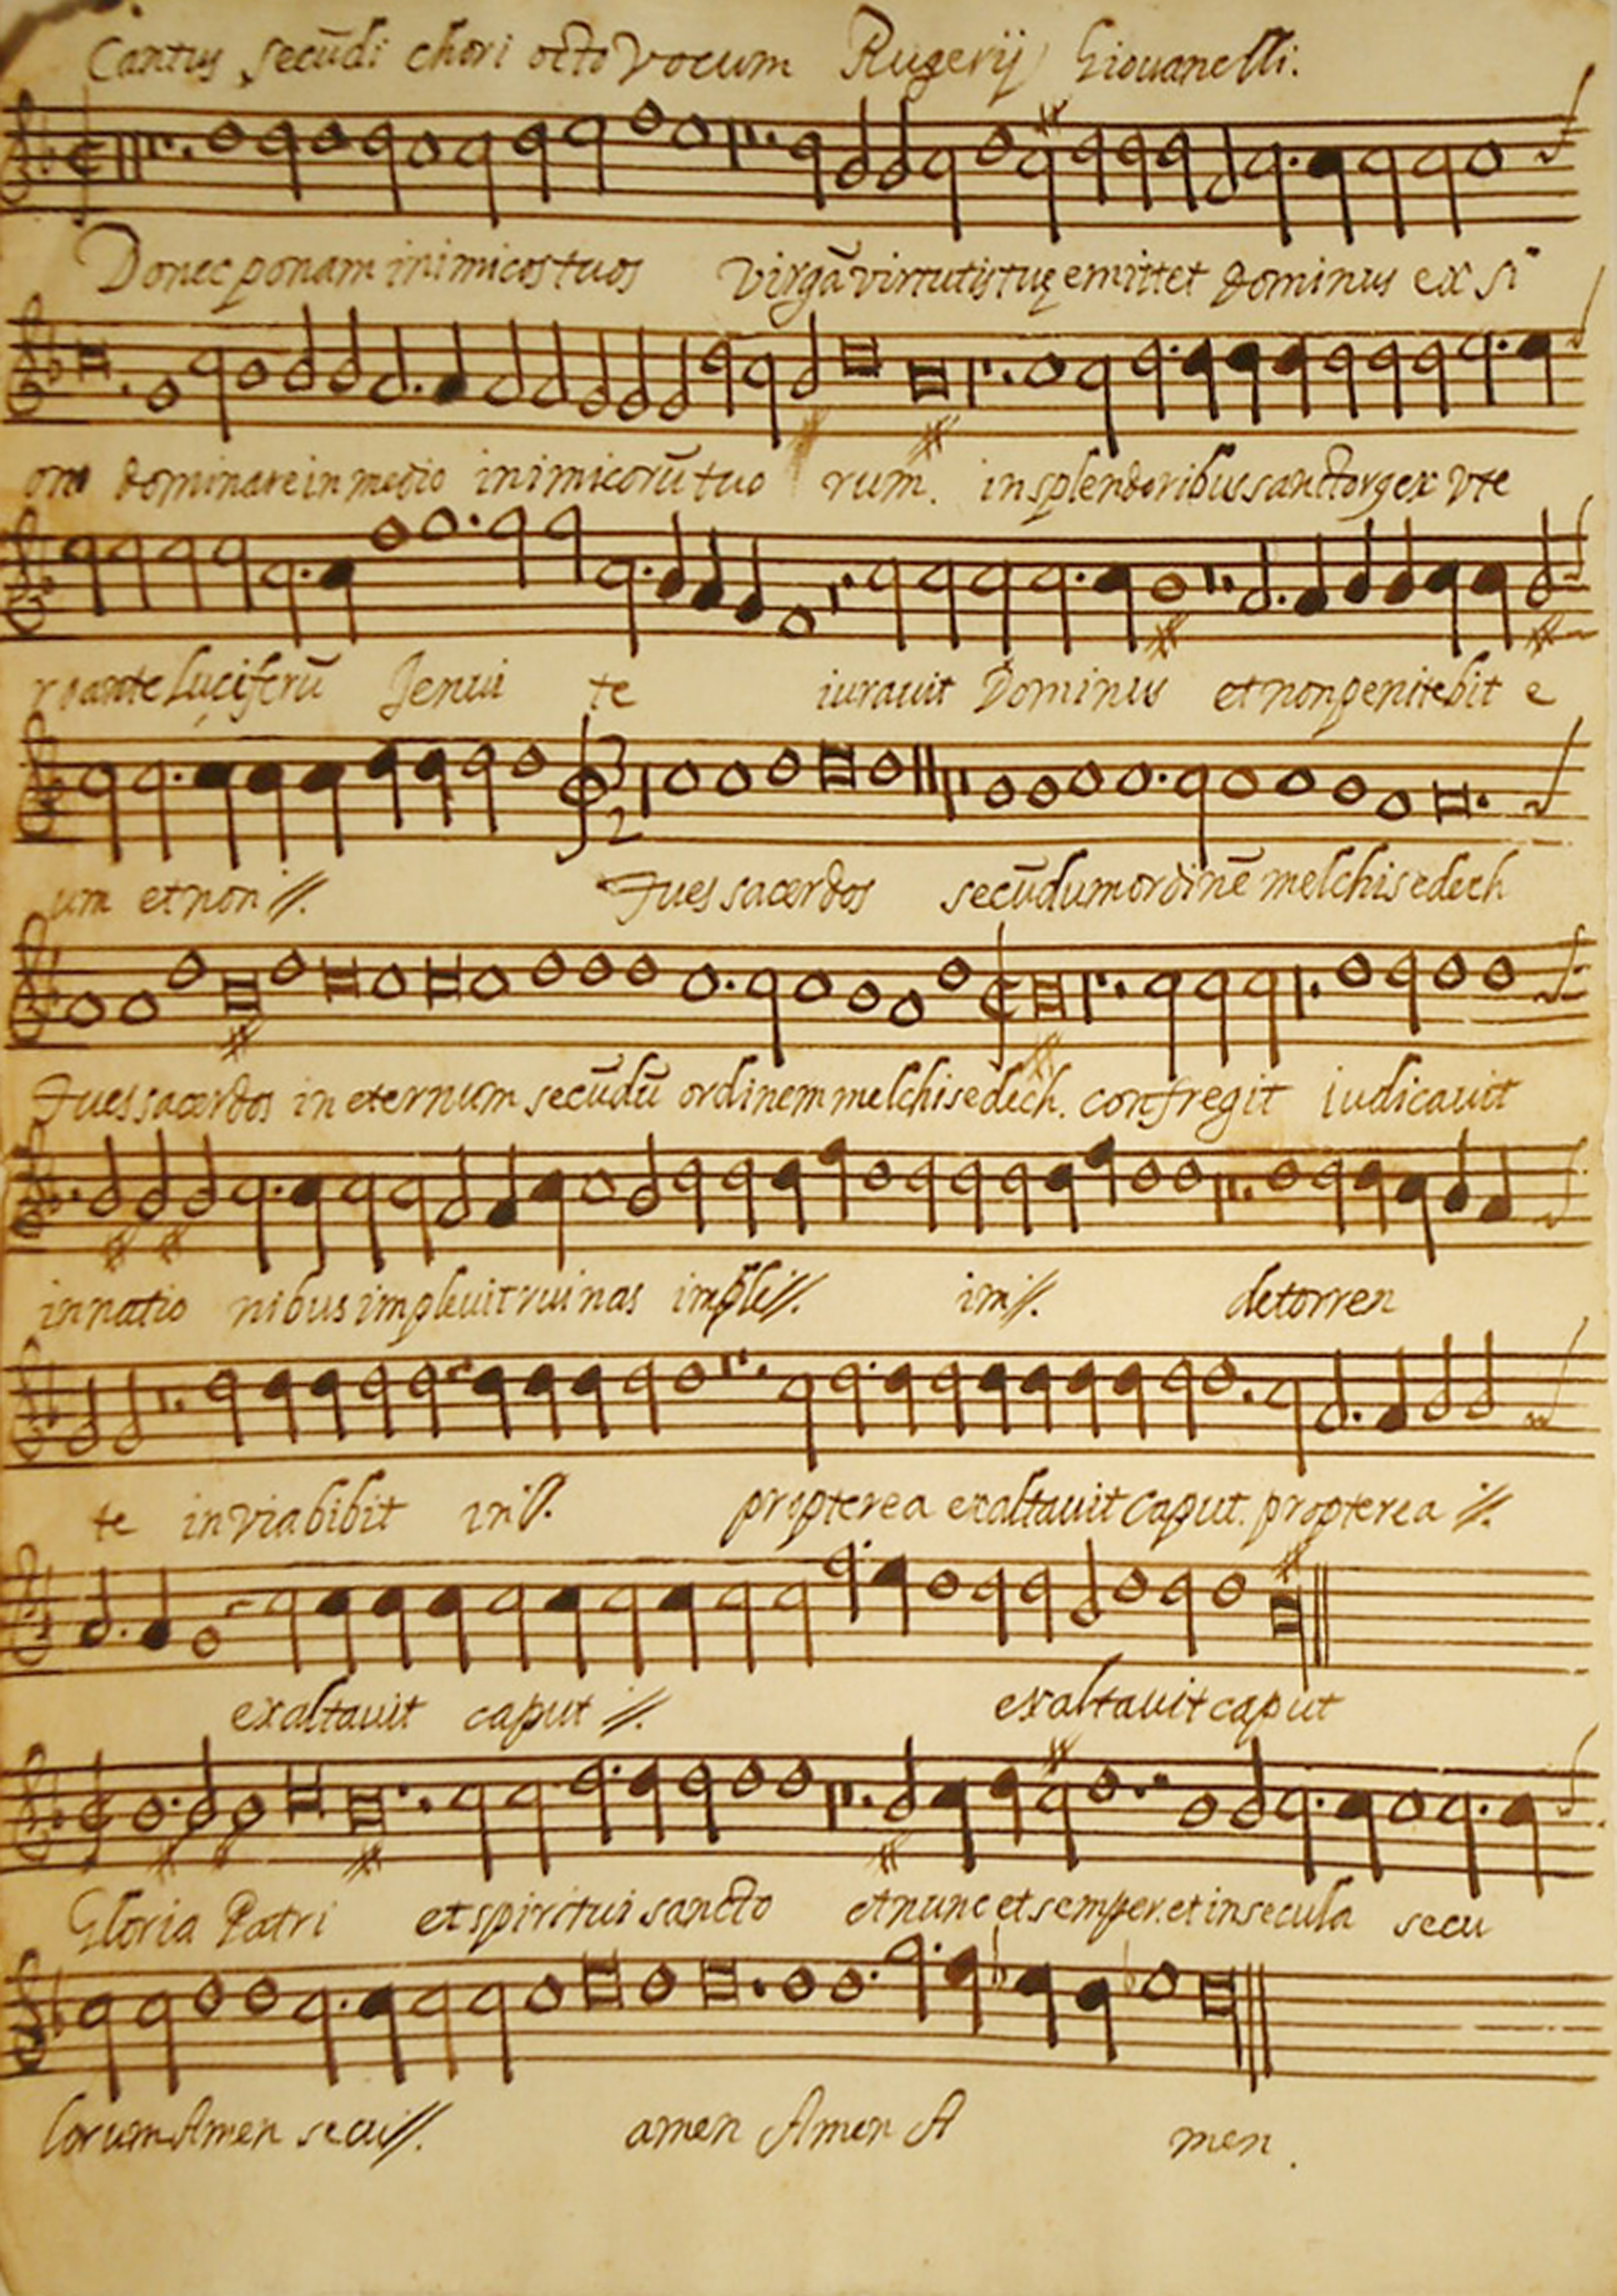 Cantus secūdi chori octo vocum Rugerij Giouanelli.
Donec ponam inimicos tuos virgā virtutis tuę emittet Dominus ex si
on dominare in medio inimicorū tuo rum. in splendoribus sanctorū ex vte
ro ante Luciferū Genui te iurauit Dominus et non penitebit e
um et non //.  Tu es sacerdos secūdum ordinē melchisedech
Tu es sacerdos in eternum secūdū ordinem melchisedech. confregit iudicauit
in natio nibus impleuit ruinas imple //. im //. de torren
te in via bibit in //. propterea exaltauit caput. propterea //.
exaltauit caput //. exaltauit caput
Gloria Patri et spiritui sancto et nunc et semper. et in secula secu
lorum Amen secu //. amen Amen A men.